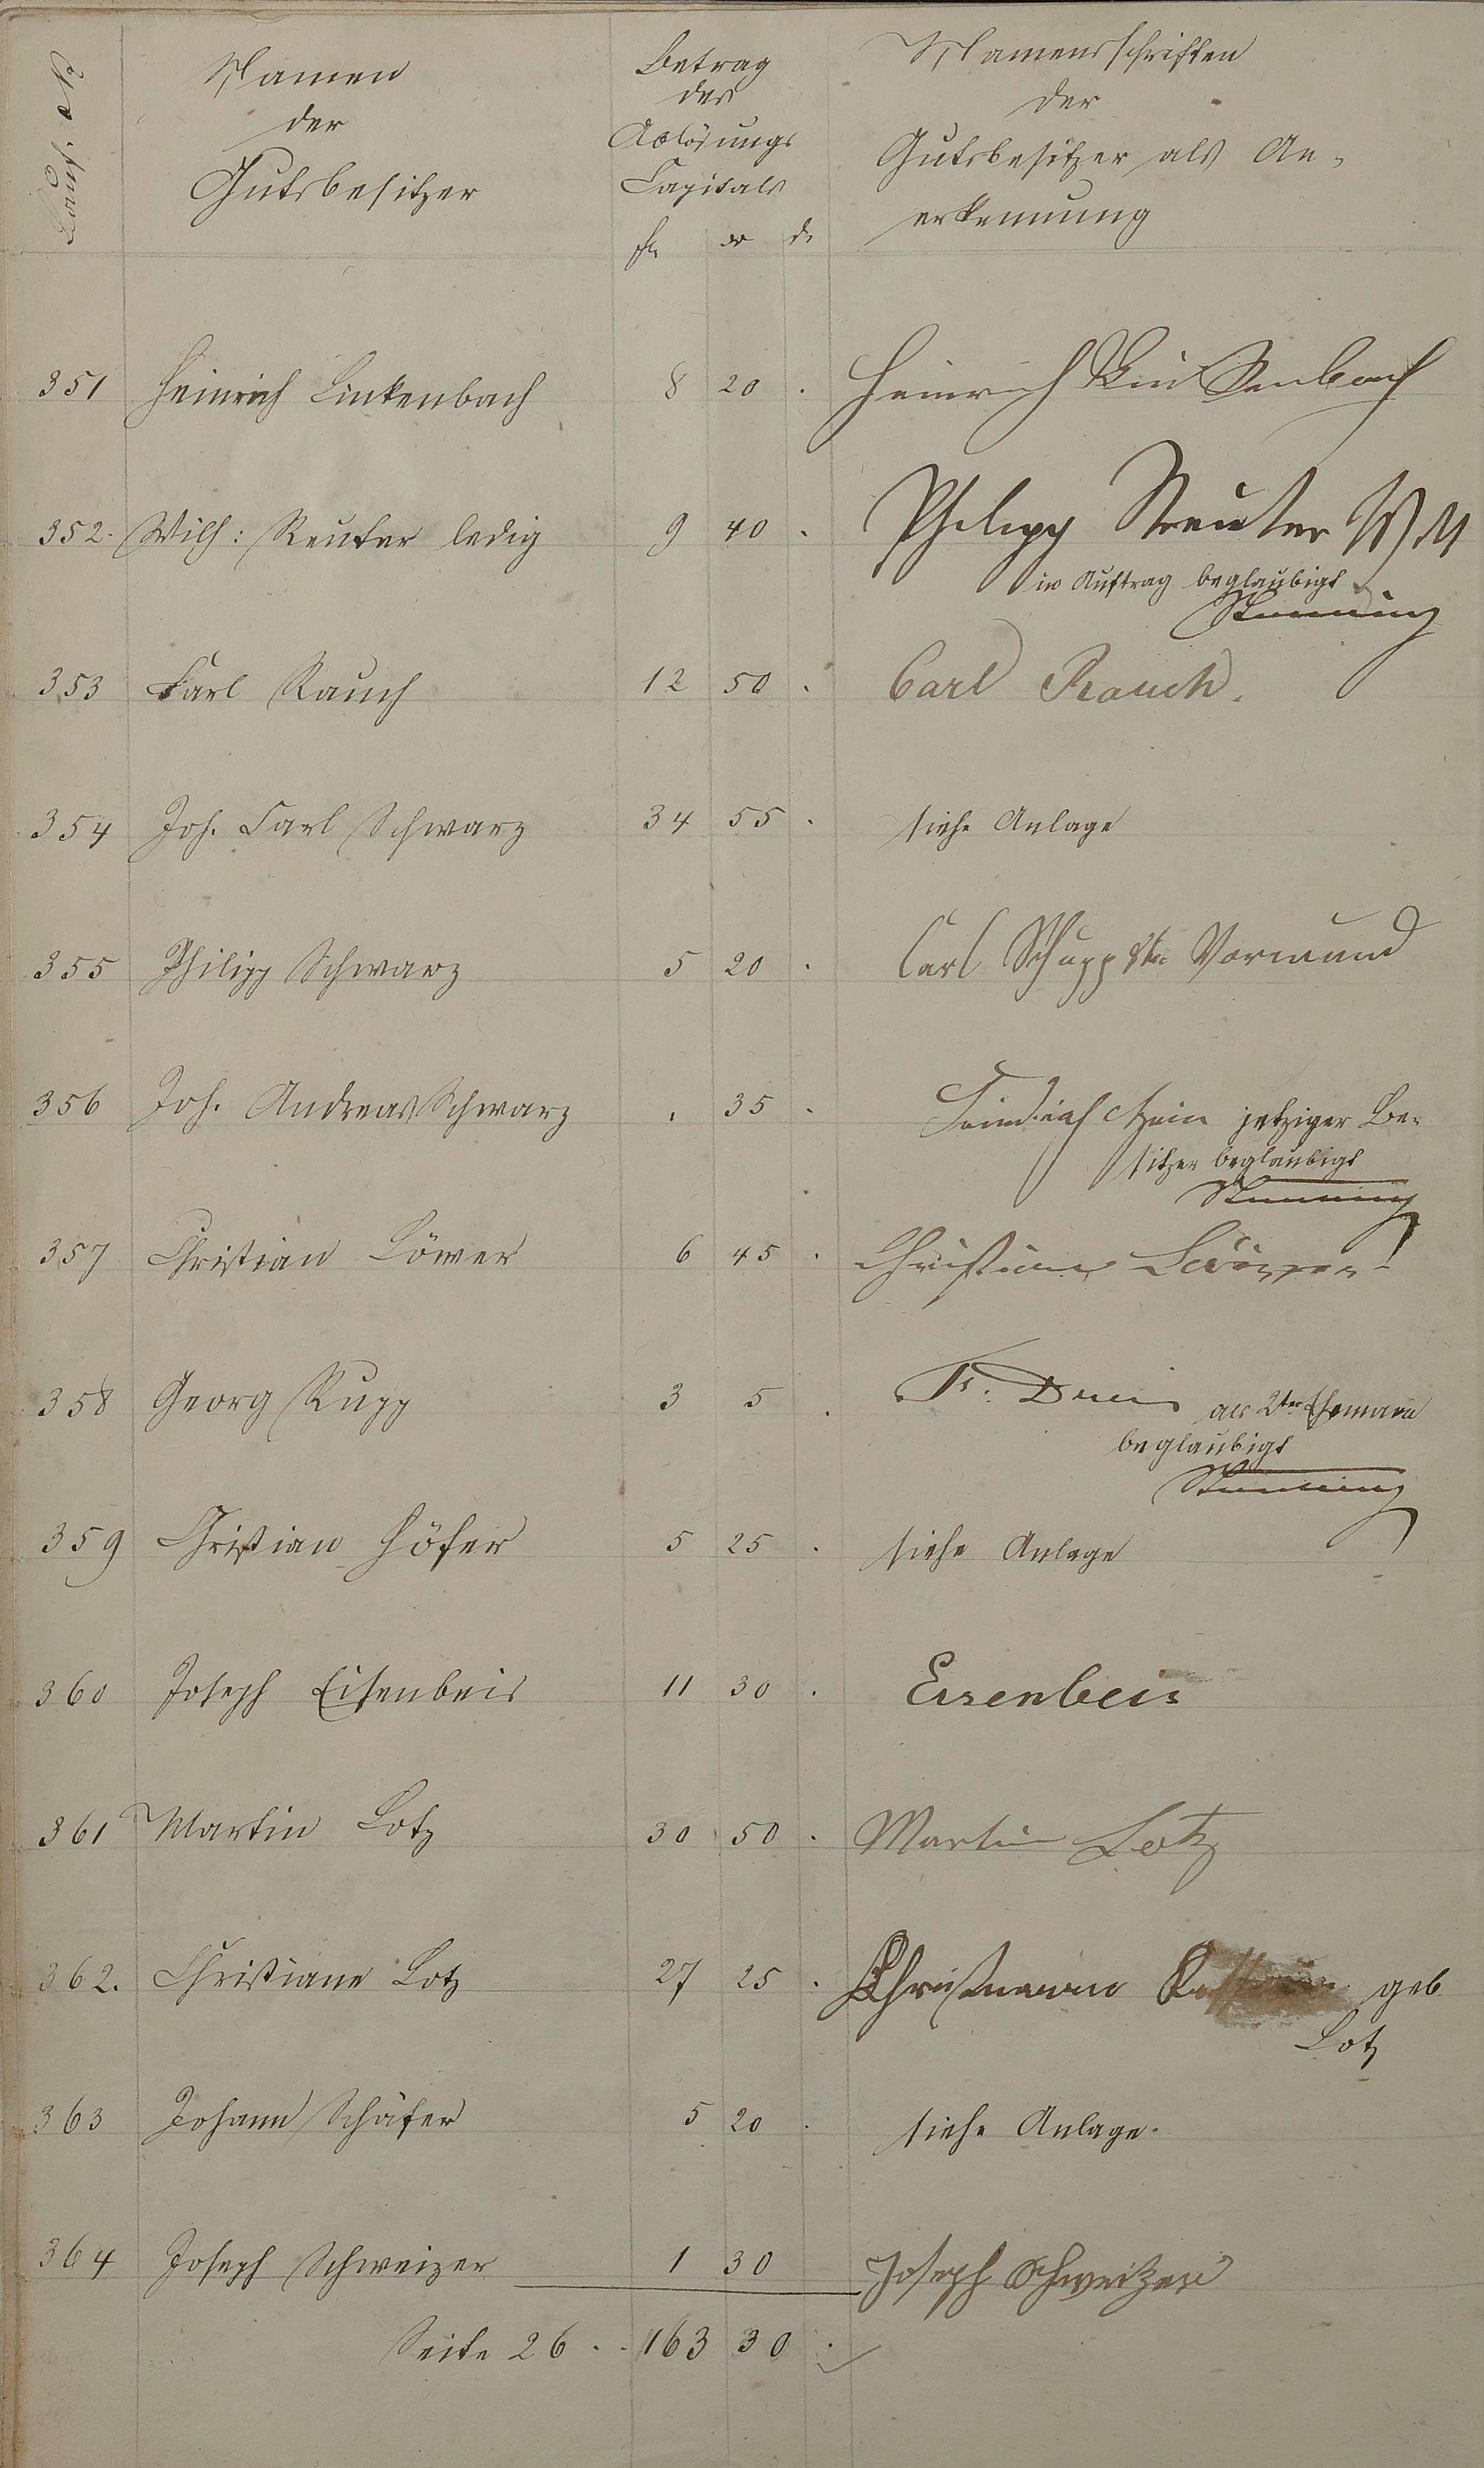 Namen
der
Gutsbesitzer
Betrag
des
Ablösungs
Capitals
fl xr d.
Namensschriften
der
Gutsbesitzer als An-
erkennung
351 Heinrich Linkenbach 8 20 . Heinrich Linkenbach
352. Wilh: Reuter ledig 9 40 . Philipp Reuter
in Auftrag beglaubigt
353 Carl Rauch 12 50 . Carl Rauch.
354 Joh. Carl Schwarz 34 55 . siehe Anlage
355 Philipp Schwarz 5 20 . Carl Schupp Vormund
356 Joh. Andreas Schwarz . 35 . jetziger Be-
sitzer beglaubigt
357 Christian Löwer 6 45 . Christian Löwer
358 Georg Rupp 3 5 . als 2ter Ehemann
beglaubigt
359 Christian Höfer 5 25 . siehe Anlage
360 Joseph Eisenbeis 11 30 . Eisenbeis
361 Martin Lotz 30 50 . Martin Lotz
362. Christiane Lotz 27 25 . geb
Lotz
363 Johann Schäfer 5 20 . siehe Anlage.
364 Joseph Schweizer 1 30 Joseph Schweitzer
Seite 26 . . 163 30 .